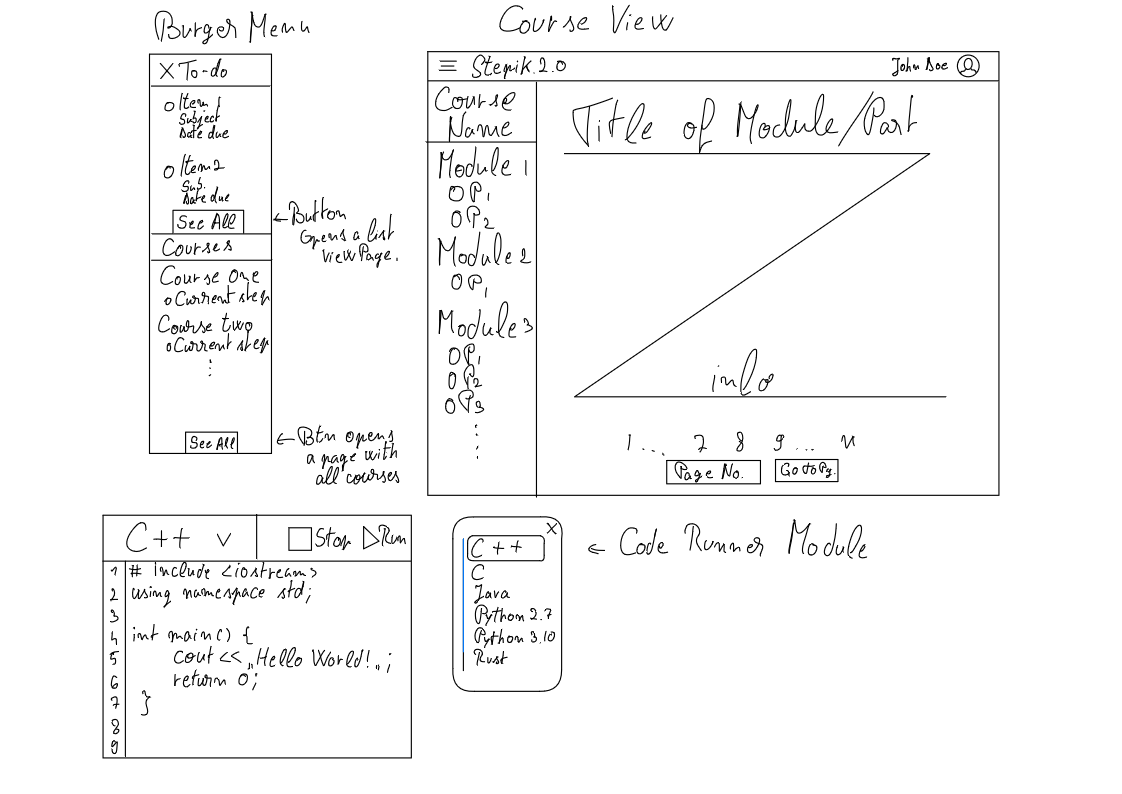 Burger Menu
X To-do
Item 1
Subject
Date due
Item 2
Sub.
Date due
See All
←Button
Opens a list
View Page.
Courses
Course One
Current step
Course two
Current step
⋮
See All
←Btn opens
a page with
all courses
Course View
☰ Stepik.2.0
John Doe
Course
Name
Module 1
P1
P2
Module 2
P1
Module 3
P1
P2
P3
⋮
Title of Module/Part
info
1 ... 7 8 9 ... n
Page No.
Go to Pg.
C++ v
Stop
Run
1 # Include <iostream>
2 using namespace std;
3
4 int main() {
5 cout << „Hello World!„;
6 return 0;
7 }
8
9
X
C++
C
Java
Python 2.7
Python 3.10
Rust
← Code Runner Module